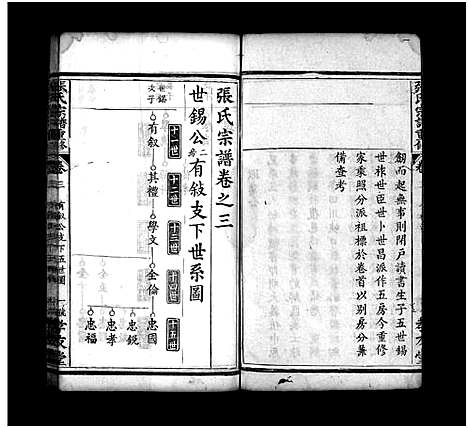 劒而起兵事則閉戶讀書生子五世錫
世祿世臣世卜世昌派作五房今重修
家乘照分派祖標於卷首以別房分兼
備查考
張氏宗譜卷之三
世錫公二房有敍支下世系圖
十一世 十二世 十三世 十四世 十五世
世錫次子 有叙 其禮 學文 全倫 忠國
忠銳
忠孝
忠福
張氏宗譜重修 卷三 有叙公支下五世圖